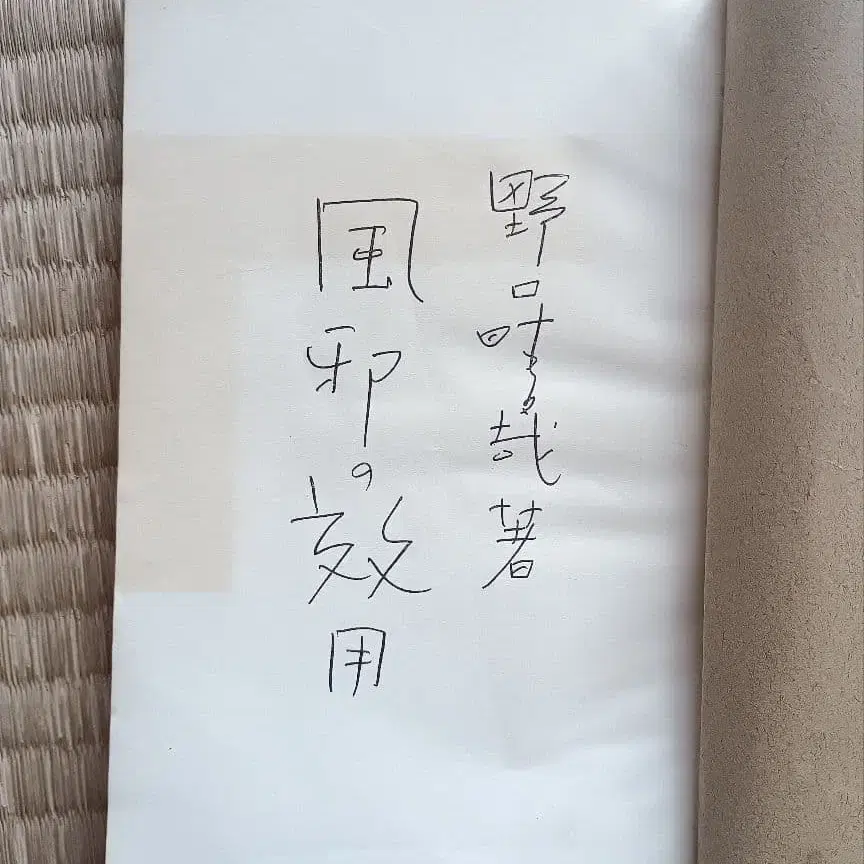 野口晴哉著
風邪の效用